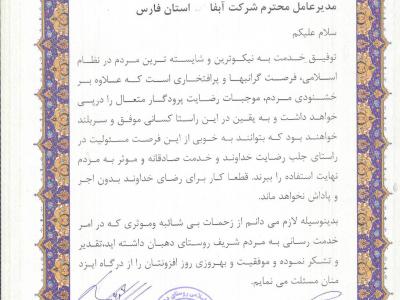 مدیرعامل محترم شرکت آبفا استان فارس
سلام علیکم
توفیق خدمت به نیکوترین و شایسته ترین مردم در نظام
اسلامی، فرصت گرانبها و پرافتخاری است که علاوه بر
خشنودی مردم، موجبات رضایت پرودگار متعال را درپی
خواهد داشت و به یقین در این راستا کسانی موفق و سربلند
خواهند بود که بتوانند به خوبی از این فرصت مسئولیت در
راستای جلب رضایت خداوند و خدمت صادقانه و موثر به مردم
نهایت استفاده را ببرند. قطعا کار برای رضای خداوند بدون اجر
و پاداش نخواهد ماند.
بدینوسیله لازم می دانم از زحمات بی شائبه وموثری که در امر
خدمت رسانی به مردم شریف روستای دهبان داشته اید،تقدیر
و تشکر نموده و موفقیت و بهروزی روز افزونتان را از درگاه ایزد
منان مسئلت می نمایم.